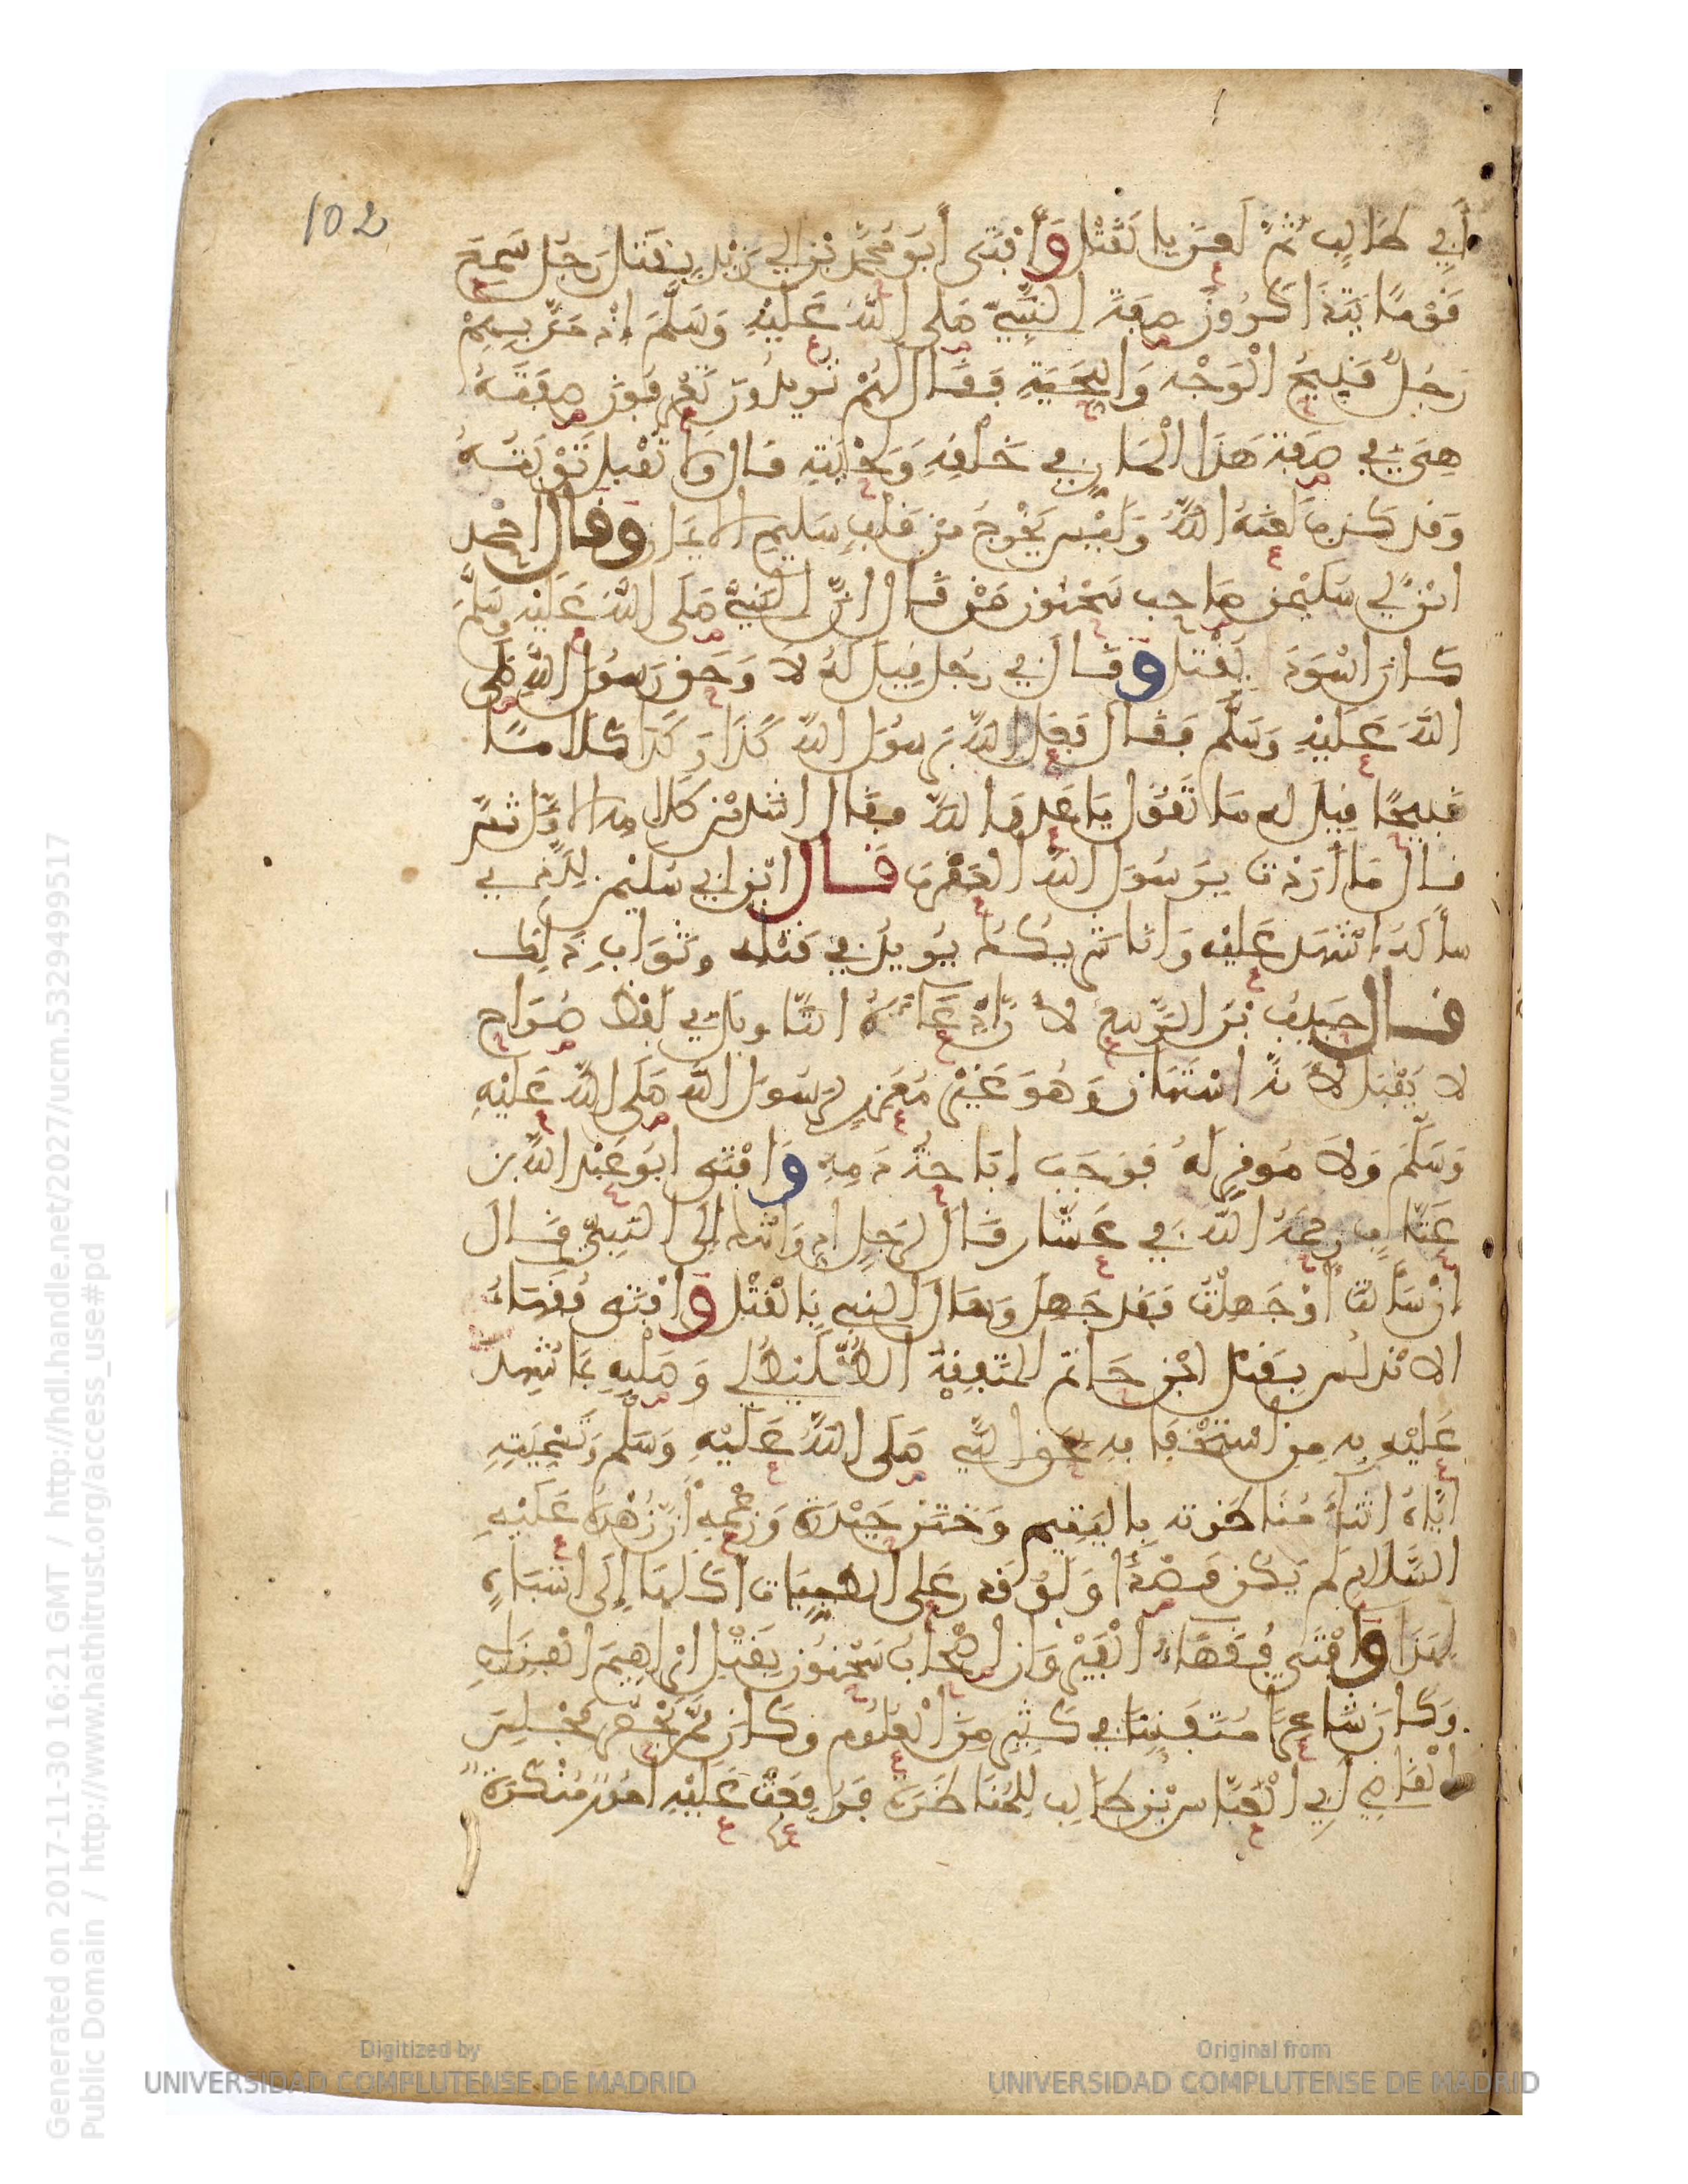 102
أَبِي طَالِبٍ ثُمَّ أَمَرَ بِالْقَتْلِ وَأَفْتَى أَبُو مُحَمَّدِ بْنُ أَبِي زَيْدٍ بِقَتْلِ رَجُلٍ سَمِعَ
قَوْمًا يَتَذَاكَرُونَ صِفَةَ النَّبِيِّ صَلَّى اللَّهُ عَلَيْهِ وَسَلَّمَ إِذْ مَرَّ بِهِمْ
رَجُلٌ قَبِيحُ الْوَجْهِ وَاللِّحْيَةِ فَقَالَ لَهُمْ تُرِيدُونَ تَعْرِفُونَ صِفَتَهُ
هِيَ فِي صِفَةِ هَذَا الْمَارِّ فِي خَلْقِهِ وَلِحْيَتِهِ قَالَ وَلَا تُقْبَلُ تَوْبَتُهُ
وَقَدْ كَذَبَ لَعَنَهُ اللَّهُ وَلَيْسَ يَخْرُجُ مِنْ قَلْبٍ سَلِيمِ الْإِيمَانِ وَقَالَ أَحْمَدُ
ابْنُ أَبِي سُلَيْمَنَ صَاحِبُ سَحْنُونَ مَنْ قَالَ إِنَّ النَّبِيَّ صَلَّى اللَّهُ عَلَيْهِ وَسَلَّمَ
كَانَ أَسْوَدَ يُقْتَلُ وَقَالَ فِي رَجُلٍ قِيلَ لَهُ لَا وَحَقِّ رَسُولِ اللَّهِ صَلَّى
اللَّهُ عَلَيْهِ وَسَلَّمَ فَقَالَ فَعَلَ اللَّهُ بِرَسُولِ اللَّهِ كَذَا وَكَذَا كَلَامًا
قَبِيحًا قِيلَ لَهُ مَا تَقُولُ يَا عَدُوَّ اللَّهِ فَقَالَ أَشَدَّ مِنْ كَلَامِهِ الْأَوَّلِ ثُمَّ
قَالَ مَا أَرَدْتُ بِرَسُولِ اللَّهِ الْعَقْرَبَ قَالَ ابْنُ أَبِي سُلَيْمَنَ لِلَّذِي
سَأَلَهُ اشْهَدْ عَلَيْهِ وَأَنَا شَرِيكُكَ يُرِيدُ فِي قَتْلِهِ وَثَوَابِ ذَلِكَ
قَالَ حَبِيبُ بْنُ الرَّبِيعِ لِأَنَّ ادِّعَاءَهُ التَّأْوِيلَ فِي لَفْظٍ صُرَاحٍ
لَا يُقْبَلُ لِأَنَّهُ امْتِهَانٌ وَهُوَ غَيْرُ مُعَزِّرٍ لِرَسُولِ اللَّهِ صَلَّى اللَّهُ عَلَيْهِ
وَسَلَّمَ وَلَا مُوَقِّرٍ لَهُ فَوَجَبَ إِبَاحَةُ دَمِهِ وَأَفْتَى أَبُو عَبْدِ اللَّهِ بْنُ
عَتَّابٍ رَحِمَهُ اللَّهُ فِي عَشَّارٍ قَالَ لِرَجُلٍ أَدِّ وَاشْكُ إِلَى النَّبِيِّ وَقَالَ
إِنْ سَأَلْتُ أَوْ جَهِلْتُ فَقَدْ جَهِلَ وَسَأَلَ النَّبِيُّ بِالْقَتْلِ وَأَفْتَى فُقَهَاءُ
الْأَنْدَلُسِ بِقَتْلِ ابْنِ حَاتِمٍ الْمُتَفَقِّهِ الطُّلَيْطُلِيِّ وَصَلْبِهِ بِمَا شُهِدَ
عَلَيْهِ بِهِ مِنِ اسْتِخْفَافِهِ بِحَقِّ النَّبِيِّ صَلَّى اللَّهُ عَلَيْهِ وَسَلَّمَ وَتَسْمِيَتِهِ
إِيَّاهُ أَثْنَاءَ مُنَاظَرَتِهِ بِالْيَتِيمِ وَخَتَنِ حَيْدَرَةَ وَزَعْمِهِ أَنَّ زُهْدَهُ عَلَيْهِ
السَّلَامُ لَمْ يَكُنْ قَصْدًا وَلَوْ قَدَرَ عَلَى الطَّيِّبَاتِ أَكَلَهَا إِلَى أَشْبَاهٍ
لِهَذَا وَأَفْتَى فُقَهَاءُ الْقَيْرَوَانِ أَصْحَابُ سَحْنُونَ بِقَتْلِ إِبْرَاهِيمَ الْفَزَارِي
وَكَانَ شَاعِرًا مُتَفَنِّنًا فِي كَثِيرٍ مِنَ الْعُلُومِ وَكَانَ مِمَّنْ يَحْضُرُ مَجْلِسَ
الْقَاضِي أَبِي الْعَبَّاسِ بْنِ طَالِبٍ لِلْمُنَاظَرَةِ فَرُفِعَتْ عَلَيْهِ أُمُورٌ مُنْكَرَةٌ
Generated on 2017-11-30 16:21 GMT / http://hdl.handle.net/2027/ucm.5329499517
Public Domain / http://www.hathitrust.org/access_use#pd
Digitized by
UNIVERSIDAD COMPLUTENSE DE MADRID
Original from
UNIVERSIDAD COMPLUTENSE DE MADRID